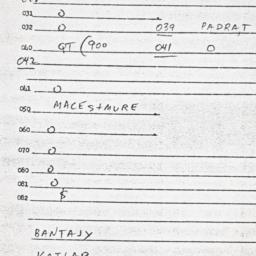 031 0
032 0 039 PADRAT
040 GT (900 041 0
042
051 0
052 MACES+MURE
060 0
070 0
080 0
081 0
082 $
BANTASY